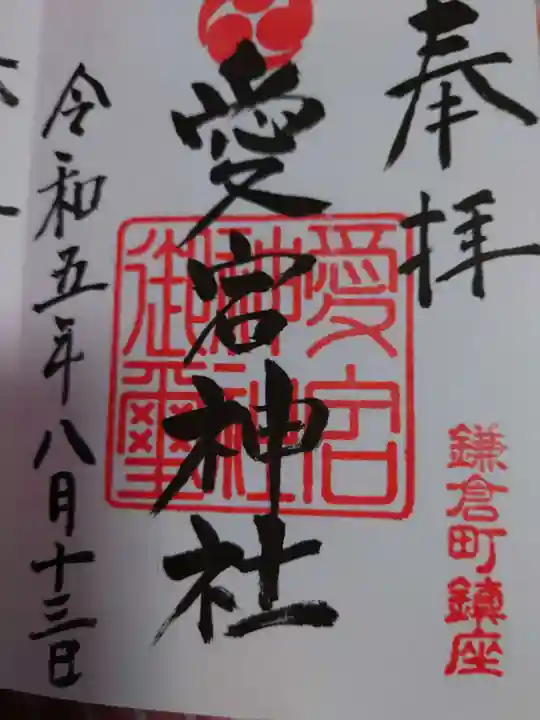 奉拝
鎌倉町鎮座
愛宕神社
愛宕
神社
御璽
令和五年八月十三日